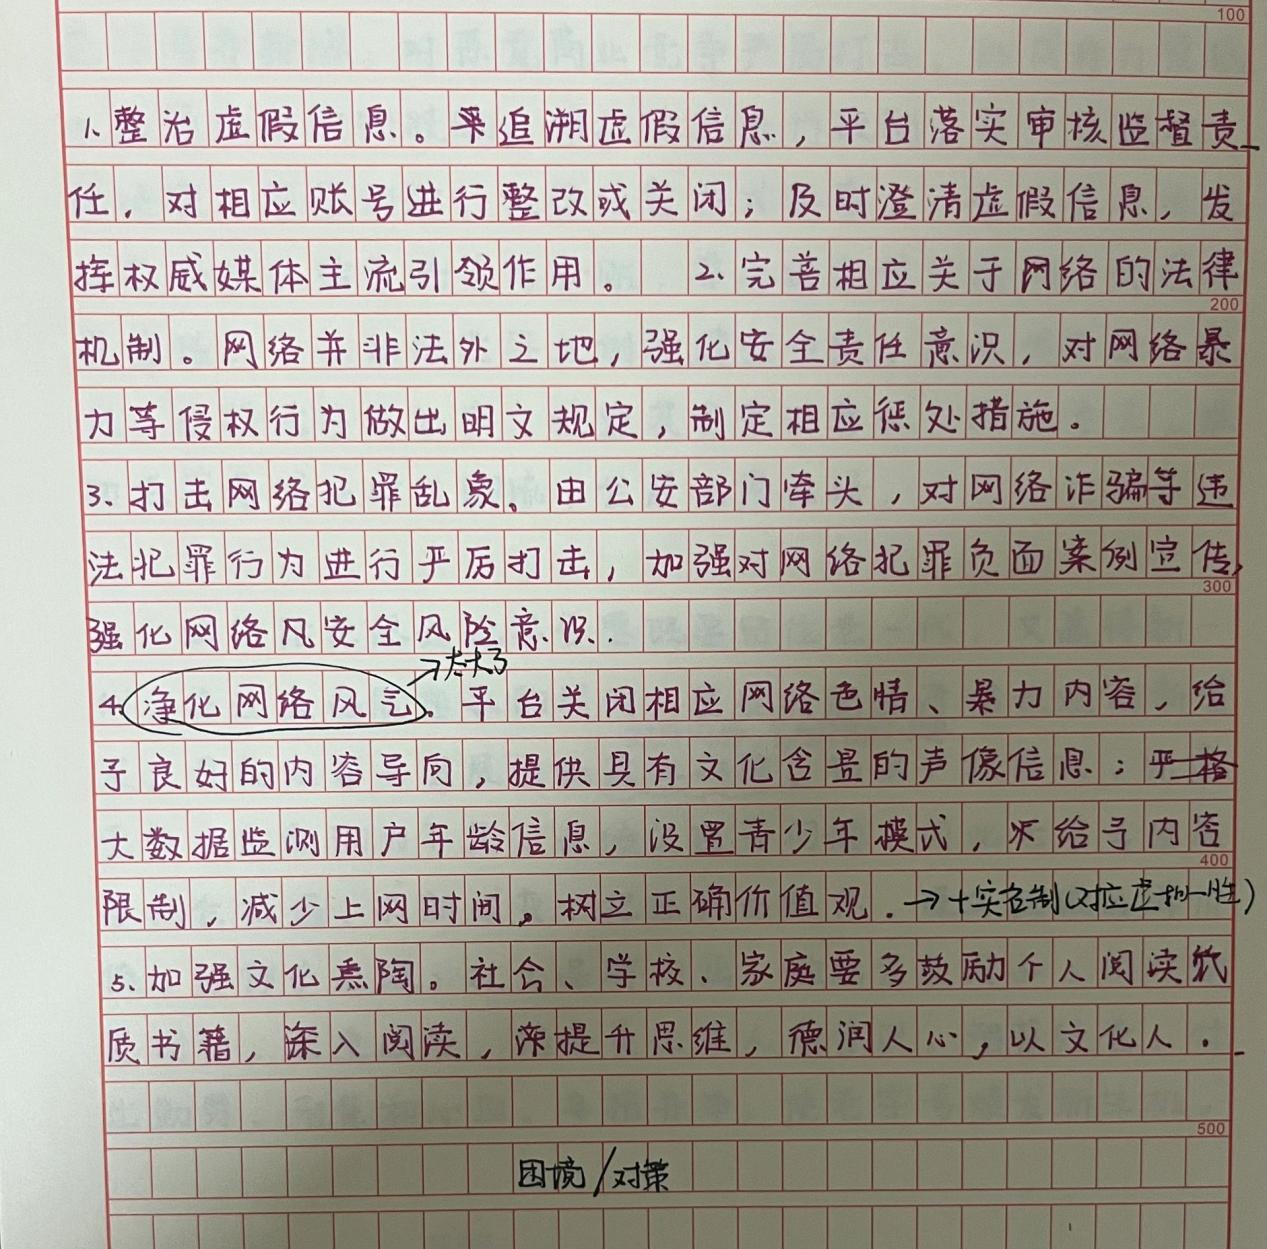 100
1、整治虚假信息。平追溯虚假信息，平台落实审核监督责
任，对相应账号进行整改或关闭；及时澄清虚假信息，发
挥权威媒体主流引领作用。 2、完善相应关于网络的法律
200
机制。网络并非法外之地，强化安全责任意识，对网络暴
力等侵权行为做出明文规定，制定相应惩处措施。
3、打击网络犯罪乱象。由公安部门牵头，对网络诈骗等违
法犯罪行为进行严厉打击，加强对网络犯罪负面案例宣传，
300
强化网络风安全风险意识．
→太大了
4、净化网络风气。平台关闭相应网络色情、暴力内容，给
予良好的内容导向，提供具有文化含量的声像信息；严格
大数据监测用户年龄信息，设置青少年模式，给予内容
400
限制，减少上网时间。树立正确价值观．→+实名制(对应虚拟性)
5、加强文化熏陶。社会、学校、家庭要多鼓励个人阅读纸
质书籍，深入阅读，深提升思维，德润人心，以文化人．
500
困境/对策